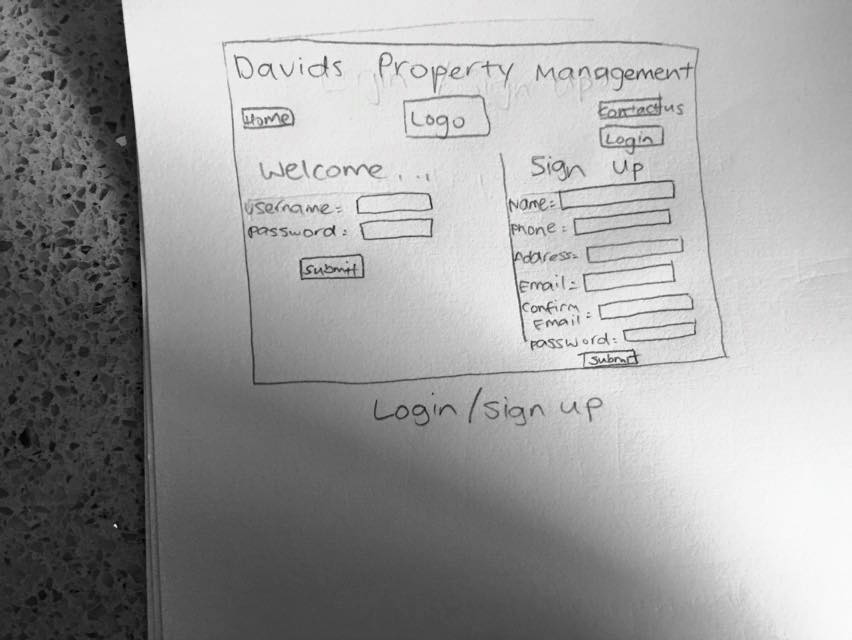 Davids Property Management
Home
Logo
Contact us
Login
Welcome...
Username:
Password:
Submit
Sign Up
Name:
Phone:
Address:
Email:
Confirm
Email:
Password:
Submit
Login/sign up